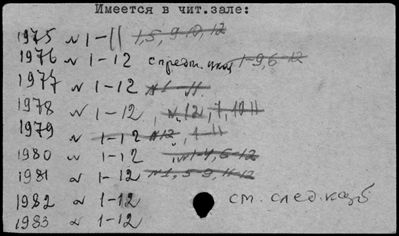 Имеется в чит.зале:
1975 № 1-11 1,5,9,10,12
1976 № 1-12 с предм. указ. 1-9,6-12
1977 № 1-12 №1-11
1978 № 1-12, № 12, 7, 10 11
1979 № 1-12 №12, 1-11
1980 № 1-12 №1-4,6-12
1981 № 1-12 №1,5-9,11-12
1982 № 1-12 см. след. каз б
1983 № 1-12